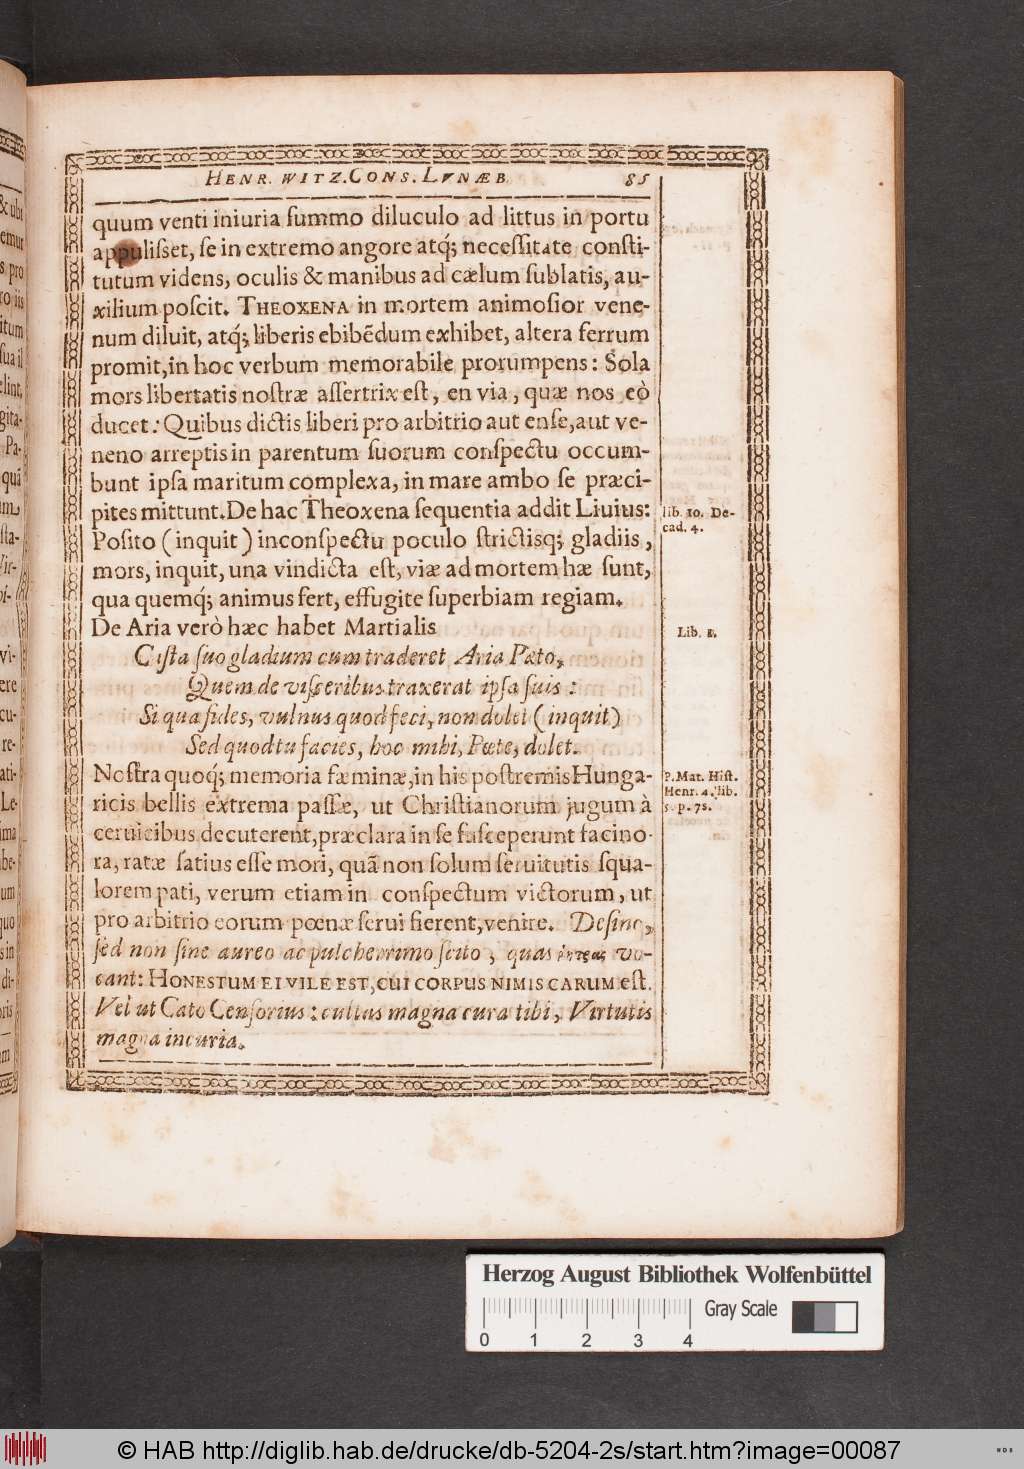 HENR. WITZ. CONS. LVNÆB. 85
quum venti iniuria ſummo diluculo ad littus in portu
appuliſſet, ſe in extremo angore atq; neceſſitate conſti-
tutum videns, oculis & manibus ad cælum ſublatis, au-
xilium poſcit. THEOXENA in mortem animoſior vene-
num diluit, atq; liberis ebibēdum exhibet, altera ferrum
promit, in hoc verbum memorabile prorumpens: Sola
mors libertatis noſtræ aſſertrix eſt, en via, quæ nos eò
ducet: Quibus dictis liberi pro arbitrio aut enſe, aut ve-
neno arreptis in parentum ſuorum conſpectu occum-
bunt ipſa maritum complexa, in mare ambo ſe præci-
pites mittunt. De hac Theoxena ſequentia addit Liuius:
lib. 10. De-
cad. 4.
Poſito (inquit) in conſpectu poculo ſtrictisq; gladiis,
mors, inquit, una vindicta eſt, viæ ad mortem hæ ſunt,
qua quemq; animus fert, effugite ſuperbiam regiam.
De Aria verò hæc habet Martialis
Lib. 1.
Caſta ſuo gladium cum traderet Aria Pæto,
Quem de viſceribus traxerat ipſa ſuis:
Si qua fides, vulnus quod feci, non dolet (inquit)
Sed quod tu facies, hoc mihi, Pæte, dolet.
Noſtra quoq; memoria fæminæ, in his poſtremis Hunga-
P. Mat. Hiſt.
Henr. 4. lib.
5. p. 75.
ricis bellis extrema paſſæ, ut Chriſtianorum jugum à
ceruicibus decuterent, præclara in ſe ſuſceperunt facino-
ra, ratæ ſatius eſſe mori, quā non ſolum ſeruitutis ſqua-
lorem pati, verum etiam in conſpectum victorum, ut
pro arbitrio eorum pœnæ ſerui fierent, venire. Deſino,
ſed non ſine aureo ac pulcherrimo ſcito, quas ῥήτρας vo-
cant: HONESTUM EI VILE EST, CUI CORPUS NIMIS CARUM eſt.
Vel ut Cato Cenſorius: cultus magna cura tibi, Virtutis
magna incuria.
Herzog August Bibliothek Wolfenbüttel
Gray Scale
0 1 2 3 4
© HAB http://diglib.hab.de/drucke/db-5204-2s/start.htm?image=00087